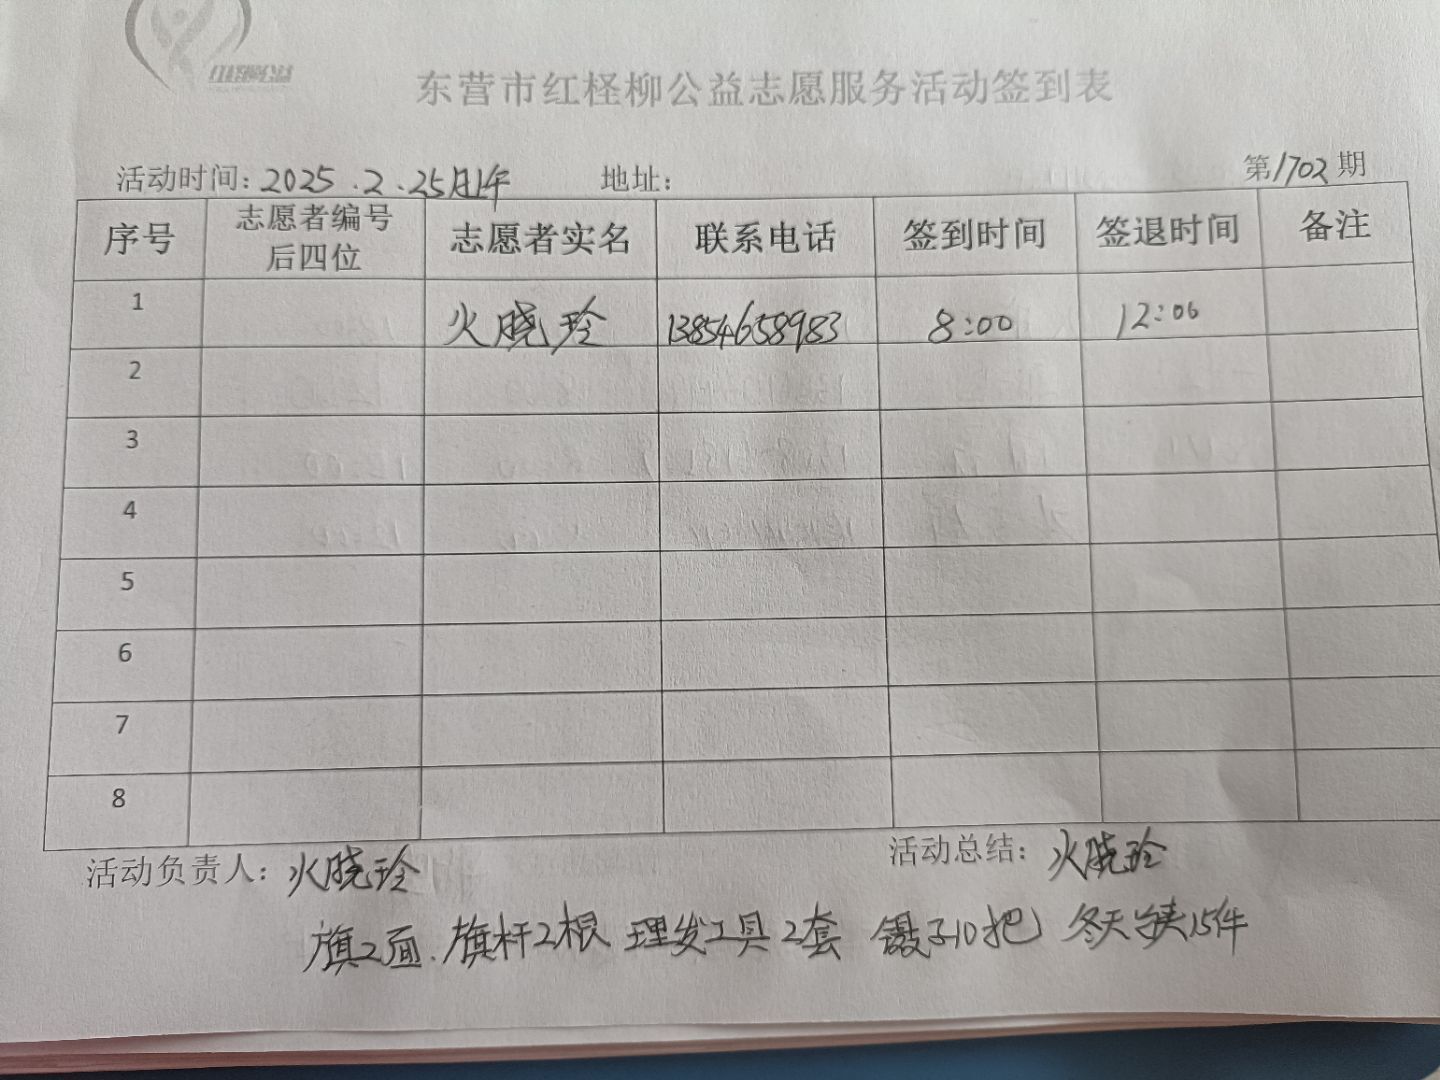 红柽柳公益
东营市红柽柳公益志愿服务活动签到表
活动时间：2025.2.25日上午 地址： 第1702期
序号 志愿者编号后四位 志愿者实名 联系电话 签到时间 签退时间 备注
1 火晓玲 13854658983 8:00 12:00
2
3
4
5
6
7
8
活动负责人：火晓玲 活动总结：火晓玲
旗2面.旗杆2根 理发工具2套 镊子10把 冬天 15件